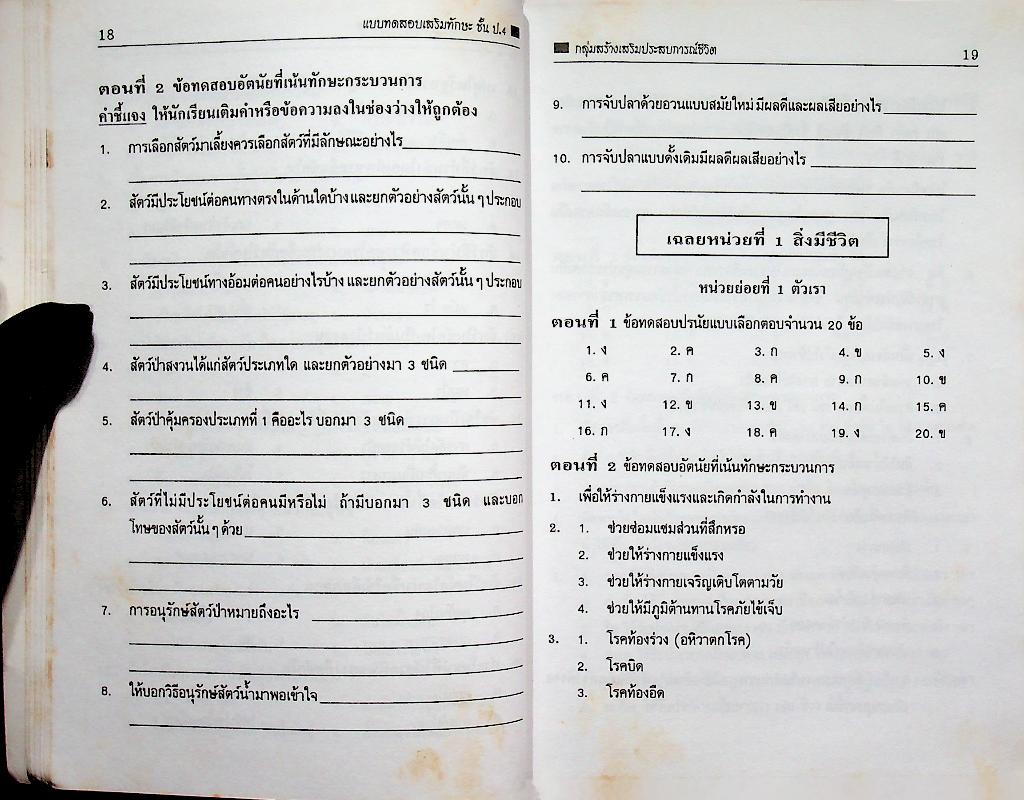 18
แบบทดสอบเสริมทักษะ ชั้น ป.4
ตอนที่ 2 ข้อทดสอบอัตนัยที่เน้นทักษะกระบวนการ
คำชี้แจง ให้นักเรียนเติมคำหรือข้อความลงในช่องว่างให้ถูกต้อง
1. การเลือกสัตว์มาเลี้ยงควรเลือกสัตว์ที่มีลักษณะอย่างไร
2. สัตว์มีประโยชน์ต่อคนทางตรงในด้านใดบ้าง และยกตัวอย่างสัตว์นั้น ๆ ประกอบ
3. สัตว์มีประโยชน์ทางอ้อมต่อคนอย่างไรบ้าง และยกตัวอย่างสัตว์นั้น ๆ ประกอบ
4. สัตว์ป่าสงวนได้แก่สัตว์ประเภทใด และยกตัวอย่างมา 3 ชนิด
5. สัตว์ป่าคุ้มครองประเภทที่ 1 คืออะไร บอกมา 3 ชนิด
6. สัตว์ที่ไม่มีประโยชน์ต่อคนมีหรือไม่ ถ้ามีบอกมา 3 ชนิด และบอก
โทษของสัตว์นั้น ๆ ด้วย
7. การอนุรักษ์สัตว์ป่าหมายถึงอะไร
8. ให้บอกวิธีอนุรักษ์สัตว์น้ำมาพอเข้าใจ
กลุ่มสร้างเสริมประสบการณ์ชีวิต
19
9. การจับปลาด้วยอวนแบบสมัยใหม่ มีผลดีและผลเสียอย่างไร
10. การจับปลาแบบดั้งเดิมมีผลดีผลเสียอย่างไร
เฉลยหน่วยที่ 1 สิ่งมีชีวิต
หน่วยย่อยที่ 1 ตัวเรา
ตอนที่ 1 ข้อทดสอบปรนัยแบบเลือกตอบจำนวน 20 ข้อ
1. ง 2. ค 3. ก 4. ข 5. ง
6. ค 7. ก 8. ค 9. ก 10. ข
11. ง 12. ข 13. ข 14. ก 15. ค
16. ก 17. ง 18. ค 19. ง 20. ข
ตอนที่ 2 ข้อทดสอบอัตนัยที่เน้นทักษะกระบวนการ
1. เพื่อให้ร่างกายแข็งแรงและเกิดกำลังในการทำงาน
2. 1. ช่วยซ่อมแซมส่วนที่สึกหรอ
2. ช่วยให้ร่างกายแข็งแรง
3. ช่วยให้ร่างกายเจริญเติบโตตามวัย
4. ช่วยให้มีภูมิต้านทานโรคภัยไข้เจ็บ
3. 1. โรคท้องร่วง (อหิวาตกโรค)
2. โรคบิด
3. โรคท้องอืด